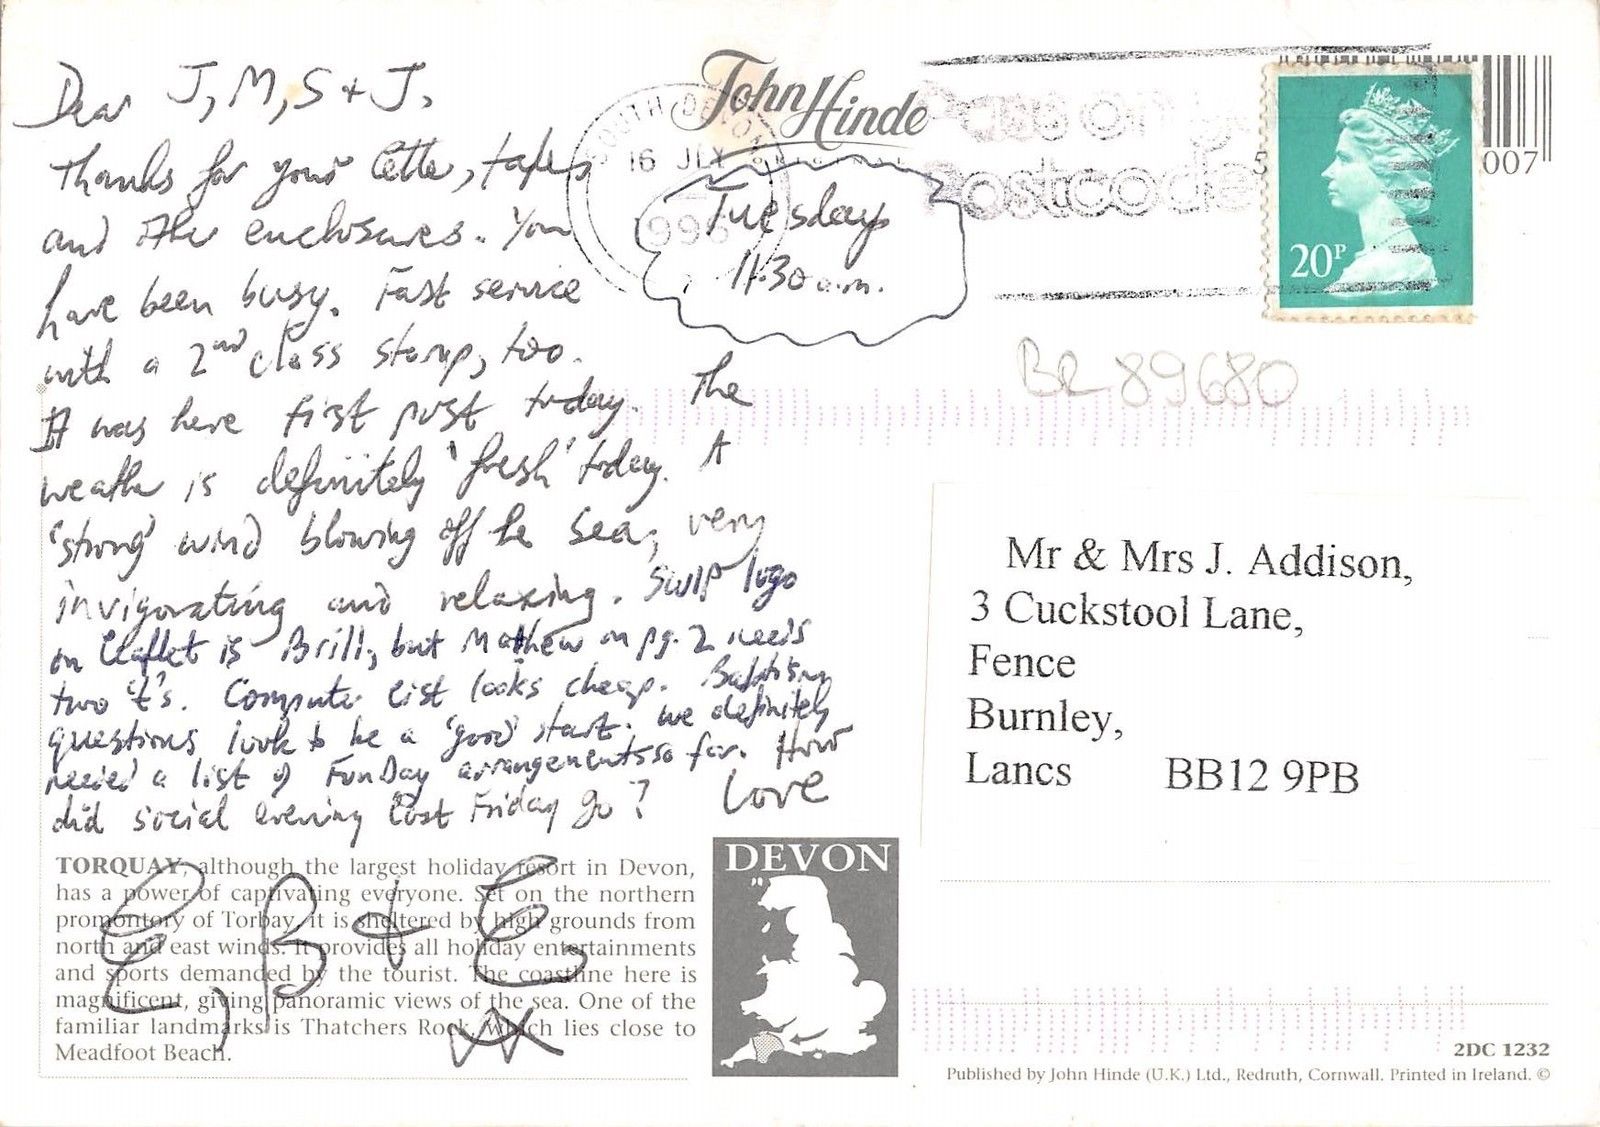 Dear J, M, S + J,
Thanks for your letter, tapes
and other enclosures. You
have been busy. Fast service
with a 2nd class stamp, too.
It was here first post today. The
weather is definitely 'fresh' today. A
'strong' wind blowing off the sea, very
invigorating and relaxing. SWIP logo
on leaflet is Brill, but Matthew on pg. 2 needs
two 't's. Computer list looks cheap. Baptism
questions look to be a 'good' start. We definitely
need a list of FunDay arrangements so far. How
did social evening last Friday go? Love
E, B + E
xx
Tuesday
11.30 a.m.
TORQUAY, although the largest holiday resort in Devon,
has a power of captivating everyone. Set on the northern
promontory of Torbay, it is sheltered by high grounds from
north and east winds. It provides all holiday entertainments
and sports demanded by the tourist. The coastline here is
magnificent, giving panoramic views of the sea. One of the
familiar landmarks is Thatchers Rock, which lies close to
Meadfoot Beach.
DEVON
John Hinde
ORIGINAL
SOUTH DEVON
16 JLY
1996
Pass on
Postcode
5
007
20P
BR 89680
Mr & Mrs J. Addison,
3 Cuckstool Lane,
Fence
Burnley,
Lancs BB12 9PB
2DC 1232
Published by John Hinde (U.K.) Ltd., Redruth, Cornwall. Printed in Ireland. ©